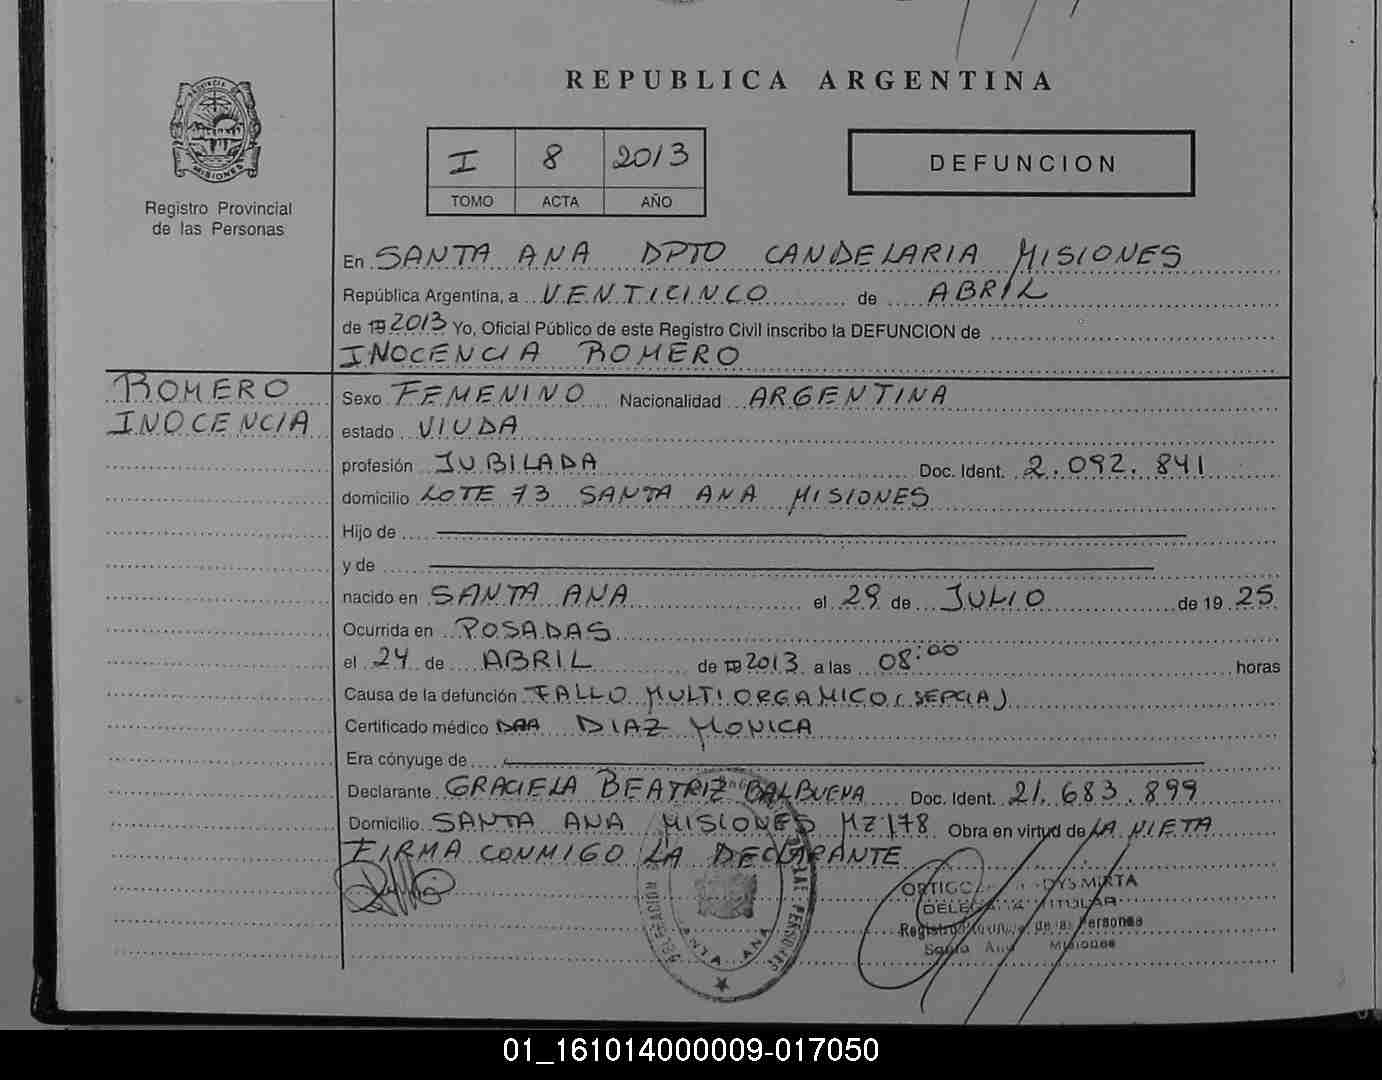 REPUBLICA ARGENTINA
PROVINCIA DE
MISIONES
Registro Provincial
de las Personas
I 8 2013
TOMO ACTA AÑO
DEFUNCION
En SANTA ANA DPTO CANDELARIA MISIONES
República Argentina, a VENTICINCO de ABRIL
de 2013 Yo, Oficial Público de este Registro Civil inscribo la DEFUNCION de
INOCENCIA ROMERO
ROMERO
INOCENCIA
Sexo FEMENINO Nacionalidad ARGENTINA
estado VIUDA
profesión JUBILADA Doc. Ident. 2.092.841
domicilio LOTE 73 SANTA ANA MISIONES
Hijo de
y de
nacido en SANTA ANA el 29 de JULIO de 19 25
Ocurrida en POSADAS
el 24 de ABRIL de 2013 a las 08:00 horas
Causa de la defunción FALLO MULTIORGAMICO (SEPCIA)
Certificado médico DRA DIAZ MONICA
Era cónyuge de
Declarante GRACIELA BEATRIZ BALBUENA Doc. Ident. 21.683.899
Domicilio SANTA ANA MISIONES MZ 178 Obra en virtud de LA NIETA
FIRMA CONMIGO LA DECLARANTE
DELEGACION
DE LAS PERSONAS
SANTA ANA
DELEGADA TITULAR
Registro Provincial de las Personas
Santa Ana Misiones
01_161014000009-017050